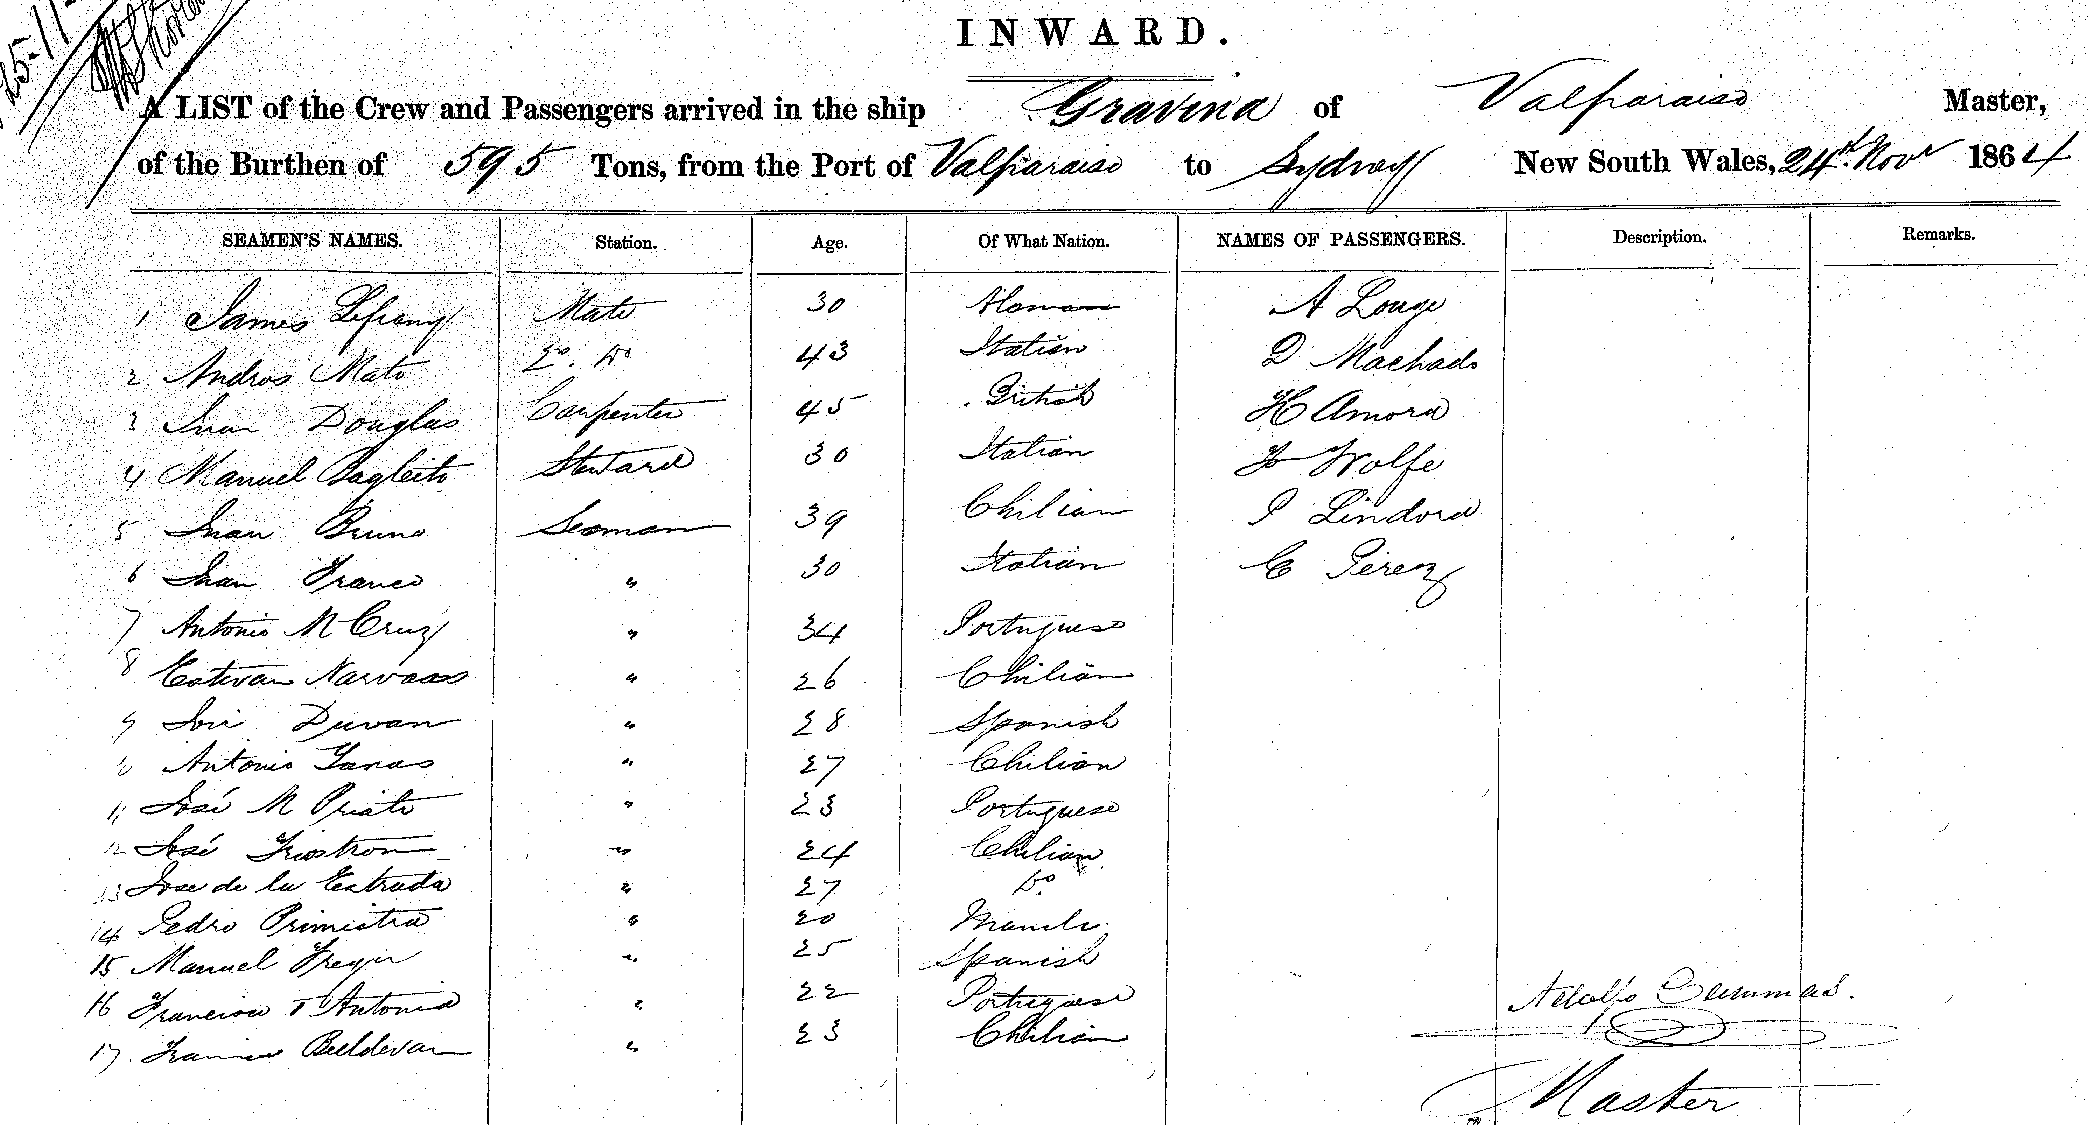 25-11-
INWARD.
A LIST of the Crew and Passengers arrived in the ship Gravina of Valparaiso Master,
of the Burthen of 595 Tons, from the Port of Valparaiso to Sydney New South Wales, 24th Novr 1864
SEAMEN'S NAMES. Station. Age. Of What Nation. NAMES OF PASSENGERS. Description. Remarks.
1 James Mate 30 A Louge
2 Andros Mato 2o. Do 43 Italian D Machado
3 Juan Douglas Carpenter 45 British H Amora
4 Manuel Bagleito Steward 30 Italian Wolfe
5 Juan Bruno Seaman 39 Chilian P Lindora
6 Juan Franco " 30 Italian C Perez
7 Antonio M Cruz " 34 Portuguese
8 Estevan Narvaas " 26 Chilian
9 José Duvan " 28 Spanish
10 Antonio " 27 Chilian
11 José M Priato " 23 Portuguese
12 José " 24 Chilian
13 Jose de la Estrada " 27 Do
14 Pedro Primistra " 20 Manila
15 Manuel " 25 Spanish
16 Francisco Antonio " 22 Portuguese
17. " 23 Chilian
Adolfo
Master